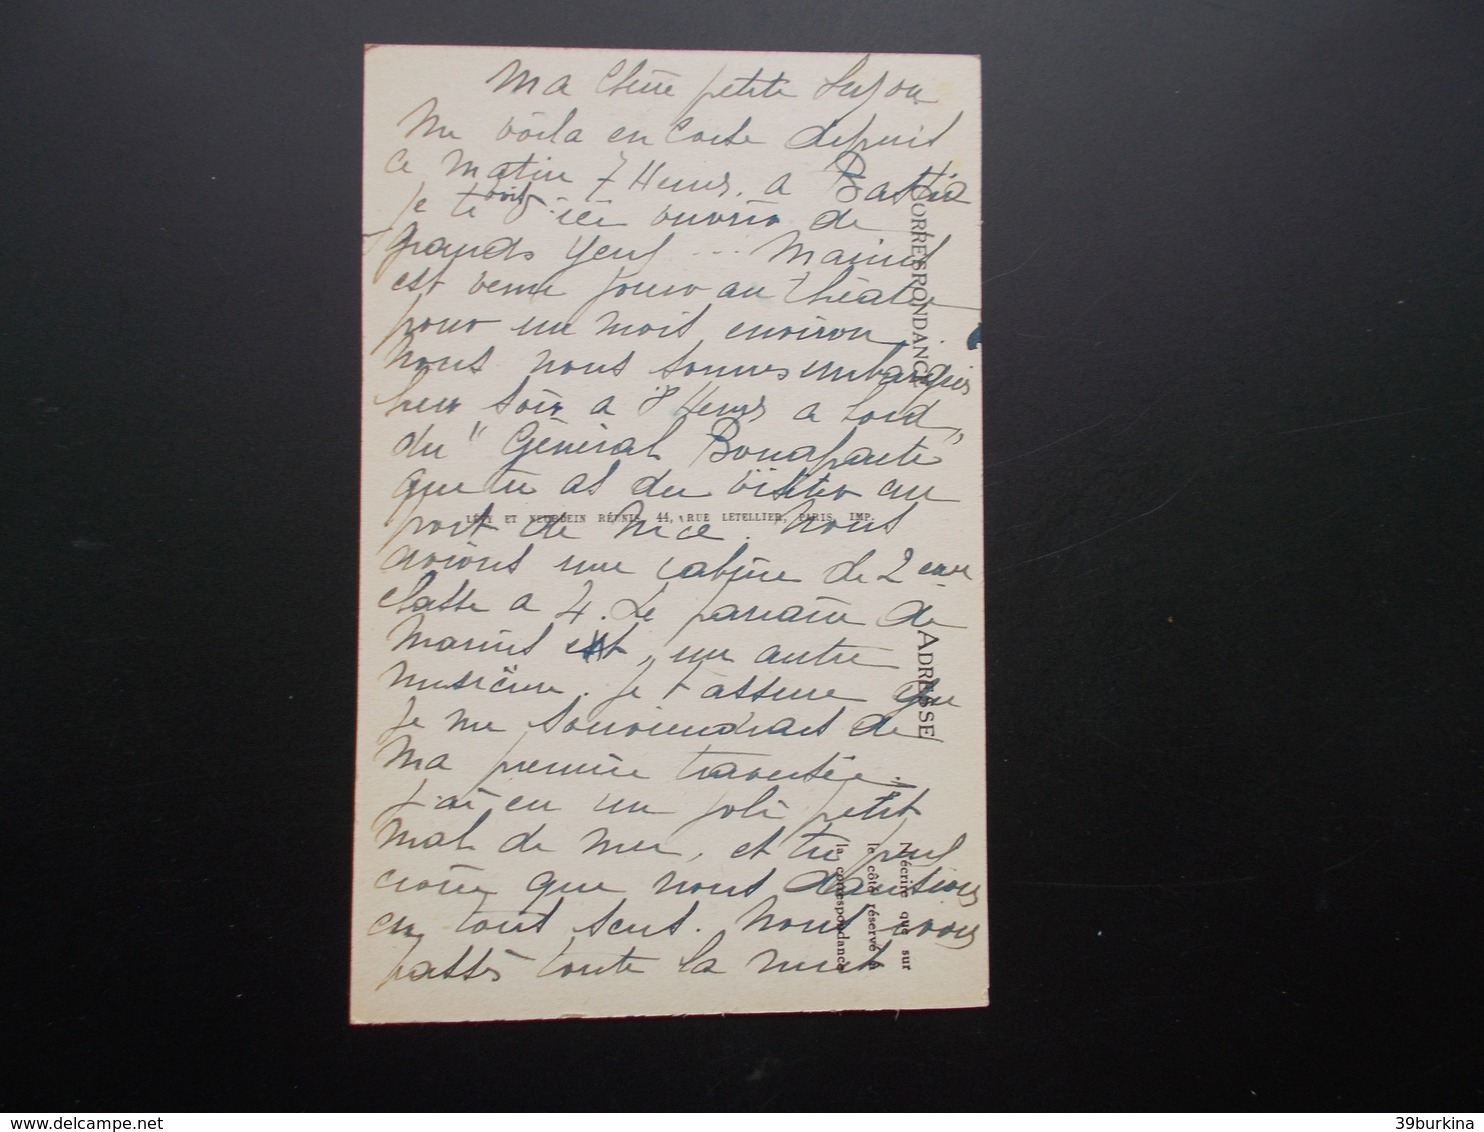 Ma Chère petite Suzon
Me voila en Corse depuis
ce matin 7 Heures. a Bastia
Je te vois d'ici ouvrir de
grands yeux ... Marius
est venu jouer au théatre
pour un mois environ.
Nous nous sommes embarqués
hier soir a 8 Heures a bord
du "Général Bonaparte"
que tu as du visiter au
port de Nice. Nous
avions une cabine de 2eme
classe a 4. Le parrain de
Marius est un autre
musicien. Je t'assure que
je me souviendrais de
ma première traversée,
j'ai eu un joli petit
mal de mer, et tu peux
croire que nous dansions
en tout sens. Nous avons
passés toute la nuit
CORRESPONDANCE
ADRESSE
LÉVY ET NEURDEIN RÉUNIS, 44, RUE LETELLIER, PARIS. IMP.
N'écrire que sur
le côté réservé à
la correspondance
delcampe.net
39burkina